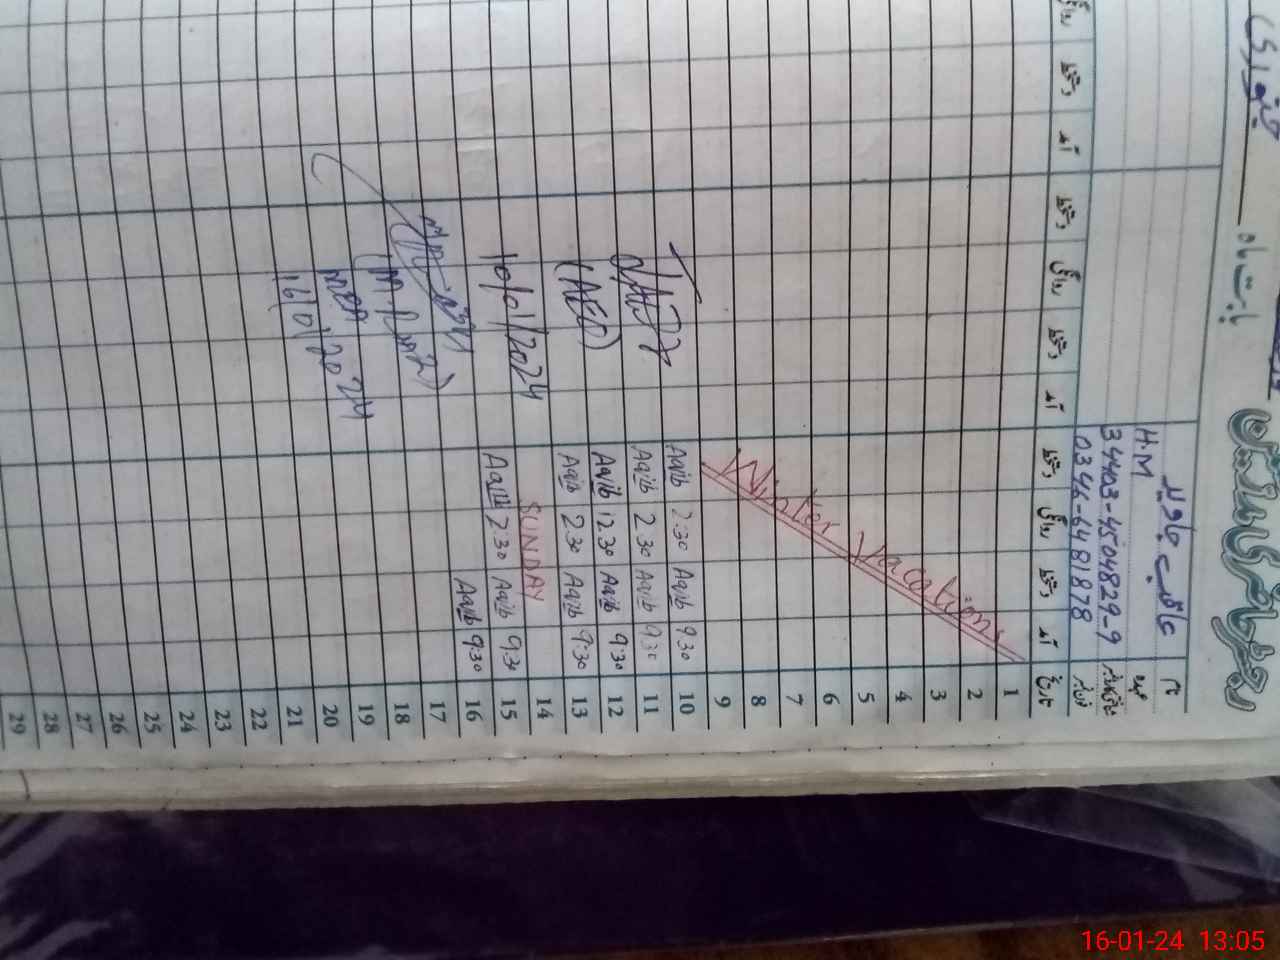 جنوری
بابت ماہ
نام
عاقب جاوید
عہدہ
H.M
شناختی کارڈ نمبر
34403-4504829-9
فون نمبر
0346-6481878
تاریخ آمد دستخط روانگی دستخط آمد دستخط روانگی دستخط آمد دستخط روانگی
1
2
3
4
5
6
7
8
9
Winter Vacations
10 9:30 Aqib 2:30 Aqib
11 9:30 Aqib 2:30 Aqib
12 9:30 Aqib 12:30 Aqib
13 9:30 Aqib 2:30 Aqib
14 SUNDAY
15 9:30 Aqib 2:30 Aqib
16 9:30 Aqib
17
18
19
20
21
22
23
24
25
26
27
28
29
(AEO)
10/01/2024
MEA
16/01/2024
16-01-24 13:05